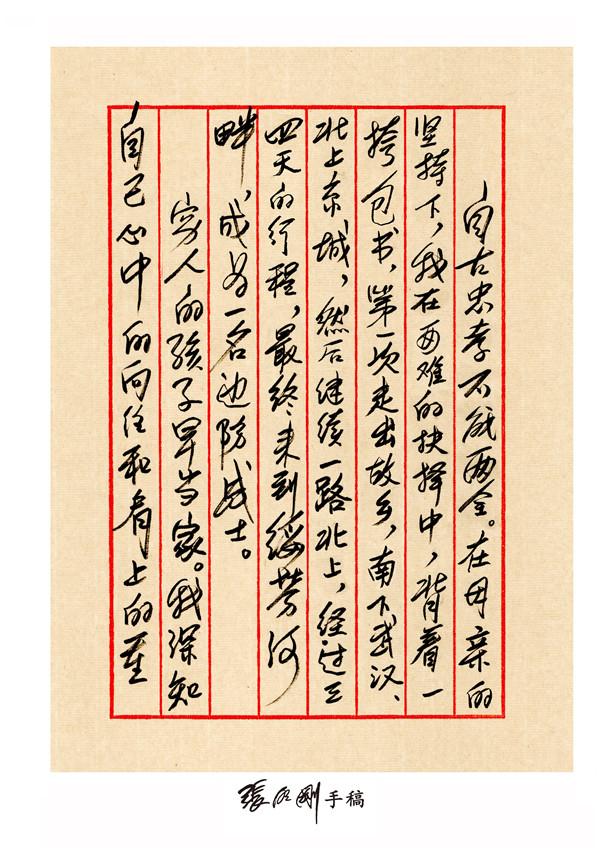 自古忠孝不能两全。在母亲的
坚持下，我在两难的抉择中，背着一
挎包书，第一次走出故乡，南下武汉、
北上京城，然后继续一路北上，经过三
四天的行程，最终来到绥芬河
畔，成为一名边防战士。
穷人的孩子早当家。我深知
自己心中的向往和肩上的重
張 剛手稿